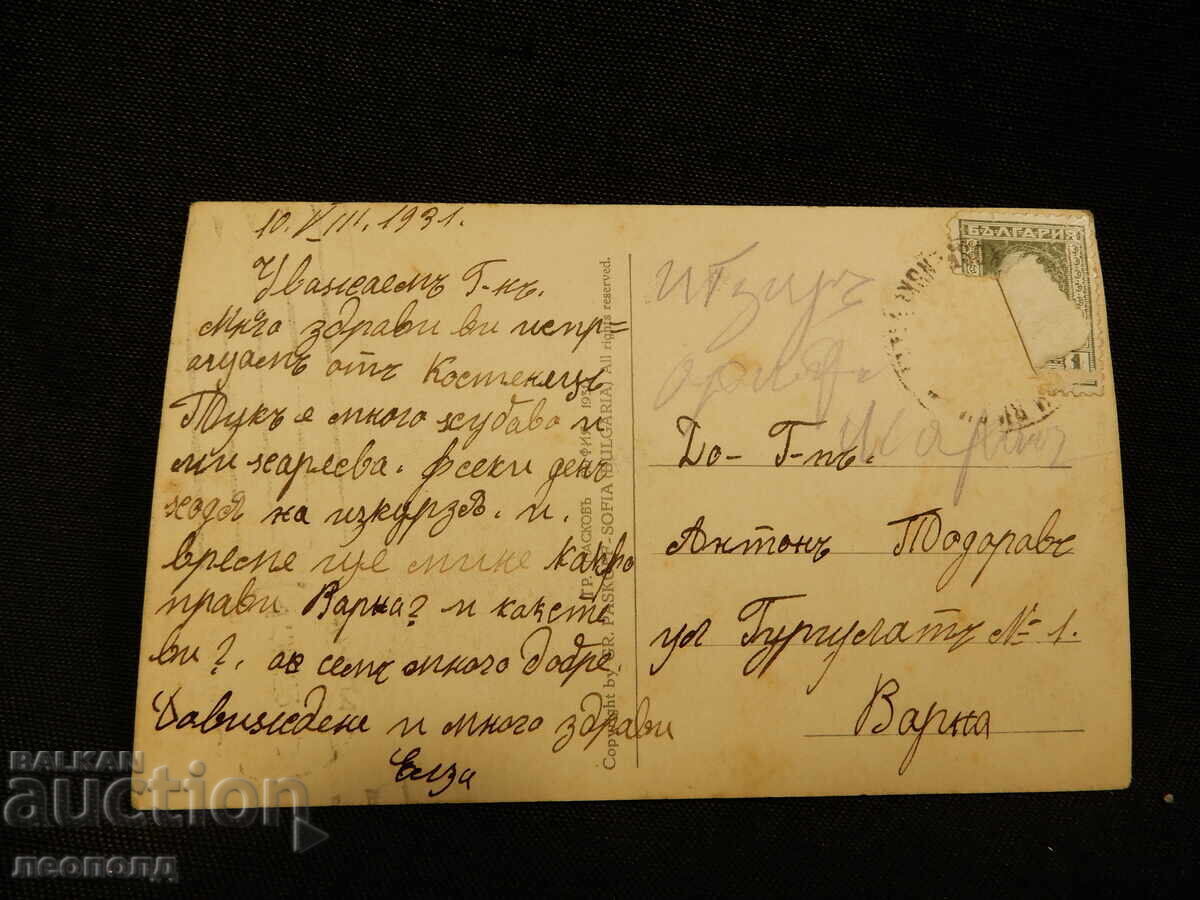 10. VIII. 1931.
Уважаемъ Г-нъ.
Много здрави ви испр=
ащамъ отъ Костенецъ
Тукъ е много хубаво и
ми харесва. Фсеки денъ
ходя на изкурзя. и.
време ще мине какво
прави Варна? и како сте
ви? аз семъ много добре.
Довиждене и много здрави
Елза
ГР. ПАСКОВЪ СОФИЯ 193
Copyright by GR. PASKOFF SOFIA (BULGARIA) All rights reserved.
БЪЛГАРИЯ
1
До- Г-нъ.
Антонъ Тодоравъ
ул Гургулатъ № 1.
Варна
BALKAN
auction
леополд